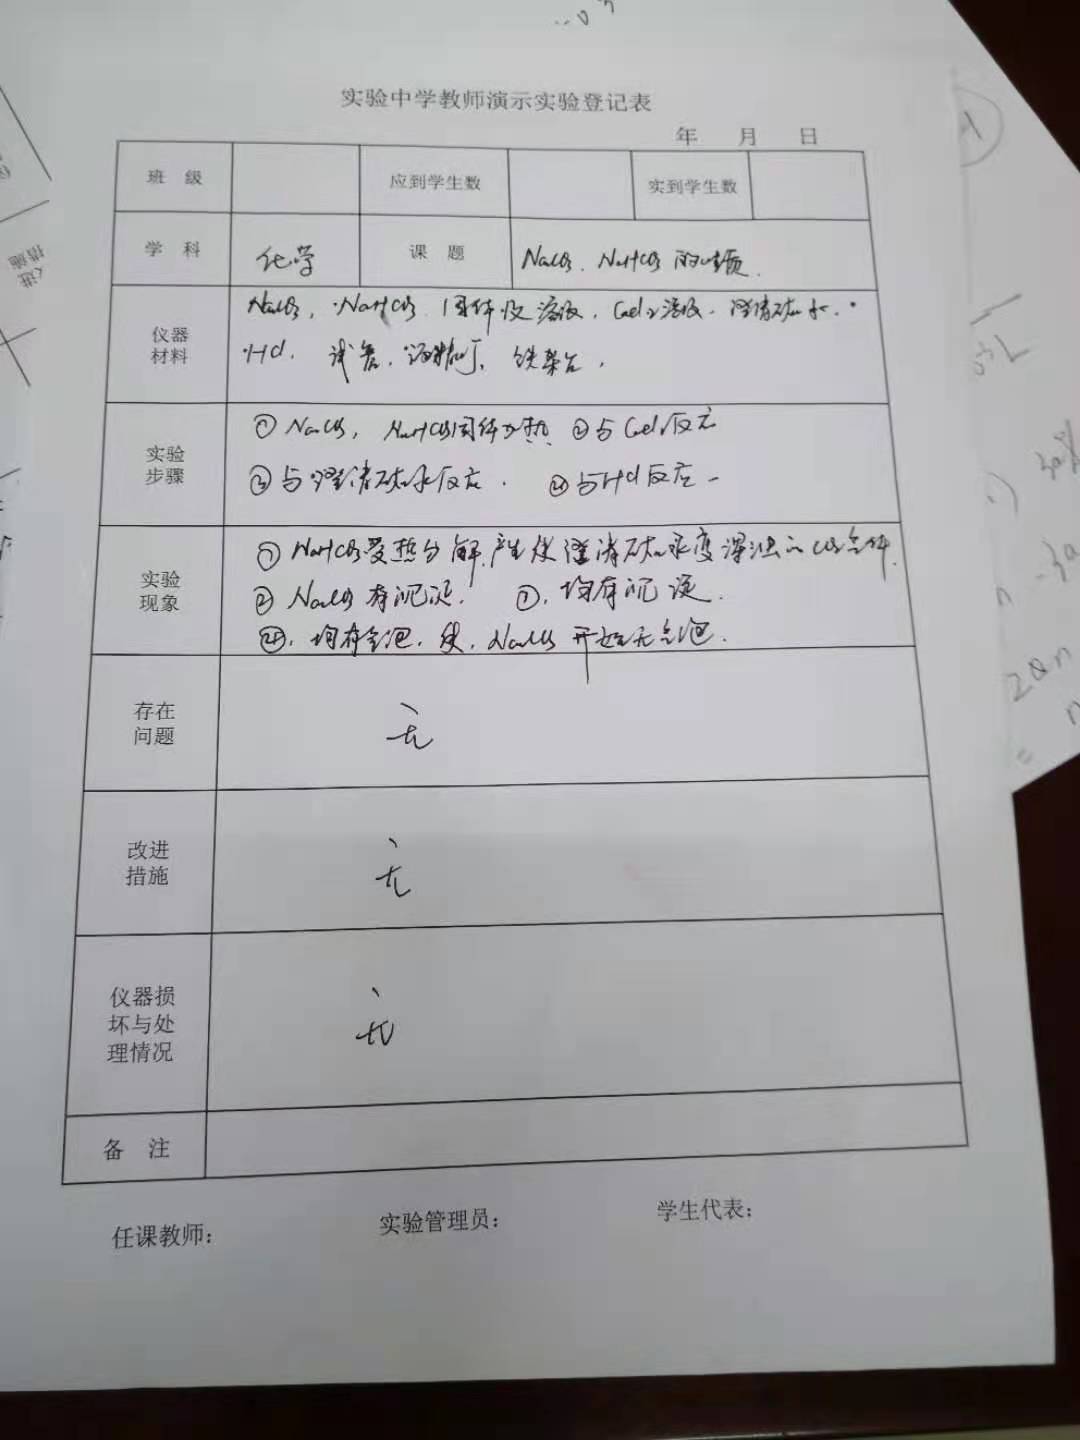 实验中学教师演示实验登记表
年 月 日
班 级 应到学生数 实到学生数
学 科 化学 课 题 Na₂CO₃、NaHCO₃的性质.
仪器
材料
Na₂CO₃, NaHCO₃ 固体及溶液, CaCl₂溶液. 澄清石灰水.
HCl. 试管, 酒精灯, 铁架台,
实验
步骤
① Na₂CO₃, NaHCO₃固体加热 ②与CaCl₂反应
③与澄清石灰水反应. ④与HCl反应
实验
现象
① NaHCO₃受热分解,产生使澄清石灰水变浑浊的CO₂气体.
② Na₂CO₃有沉淀. ③.均有沉淀.
④.均有气泡. Na₂CO₃开始无气泡.
存在
问题
无
改进
措施
无
仪器损
坏与处
理情况
无
备 注
任课教师: 实验管理员: 学生代表:
措施